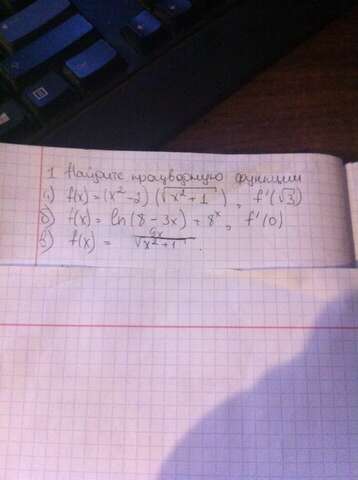 1 Найдите производную функции
а) f(x) = (x² - 2) (√x² + 1), f'(√3)
б) f(x) = ln(8 - 3x) + 8ˣ, f'(0)
в) f(x) = 6x/√x² + 1.